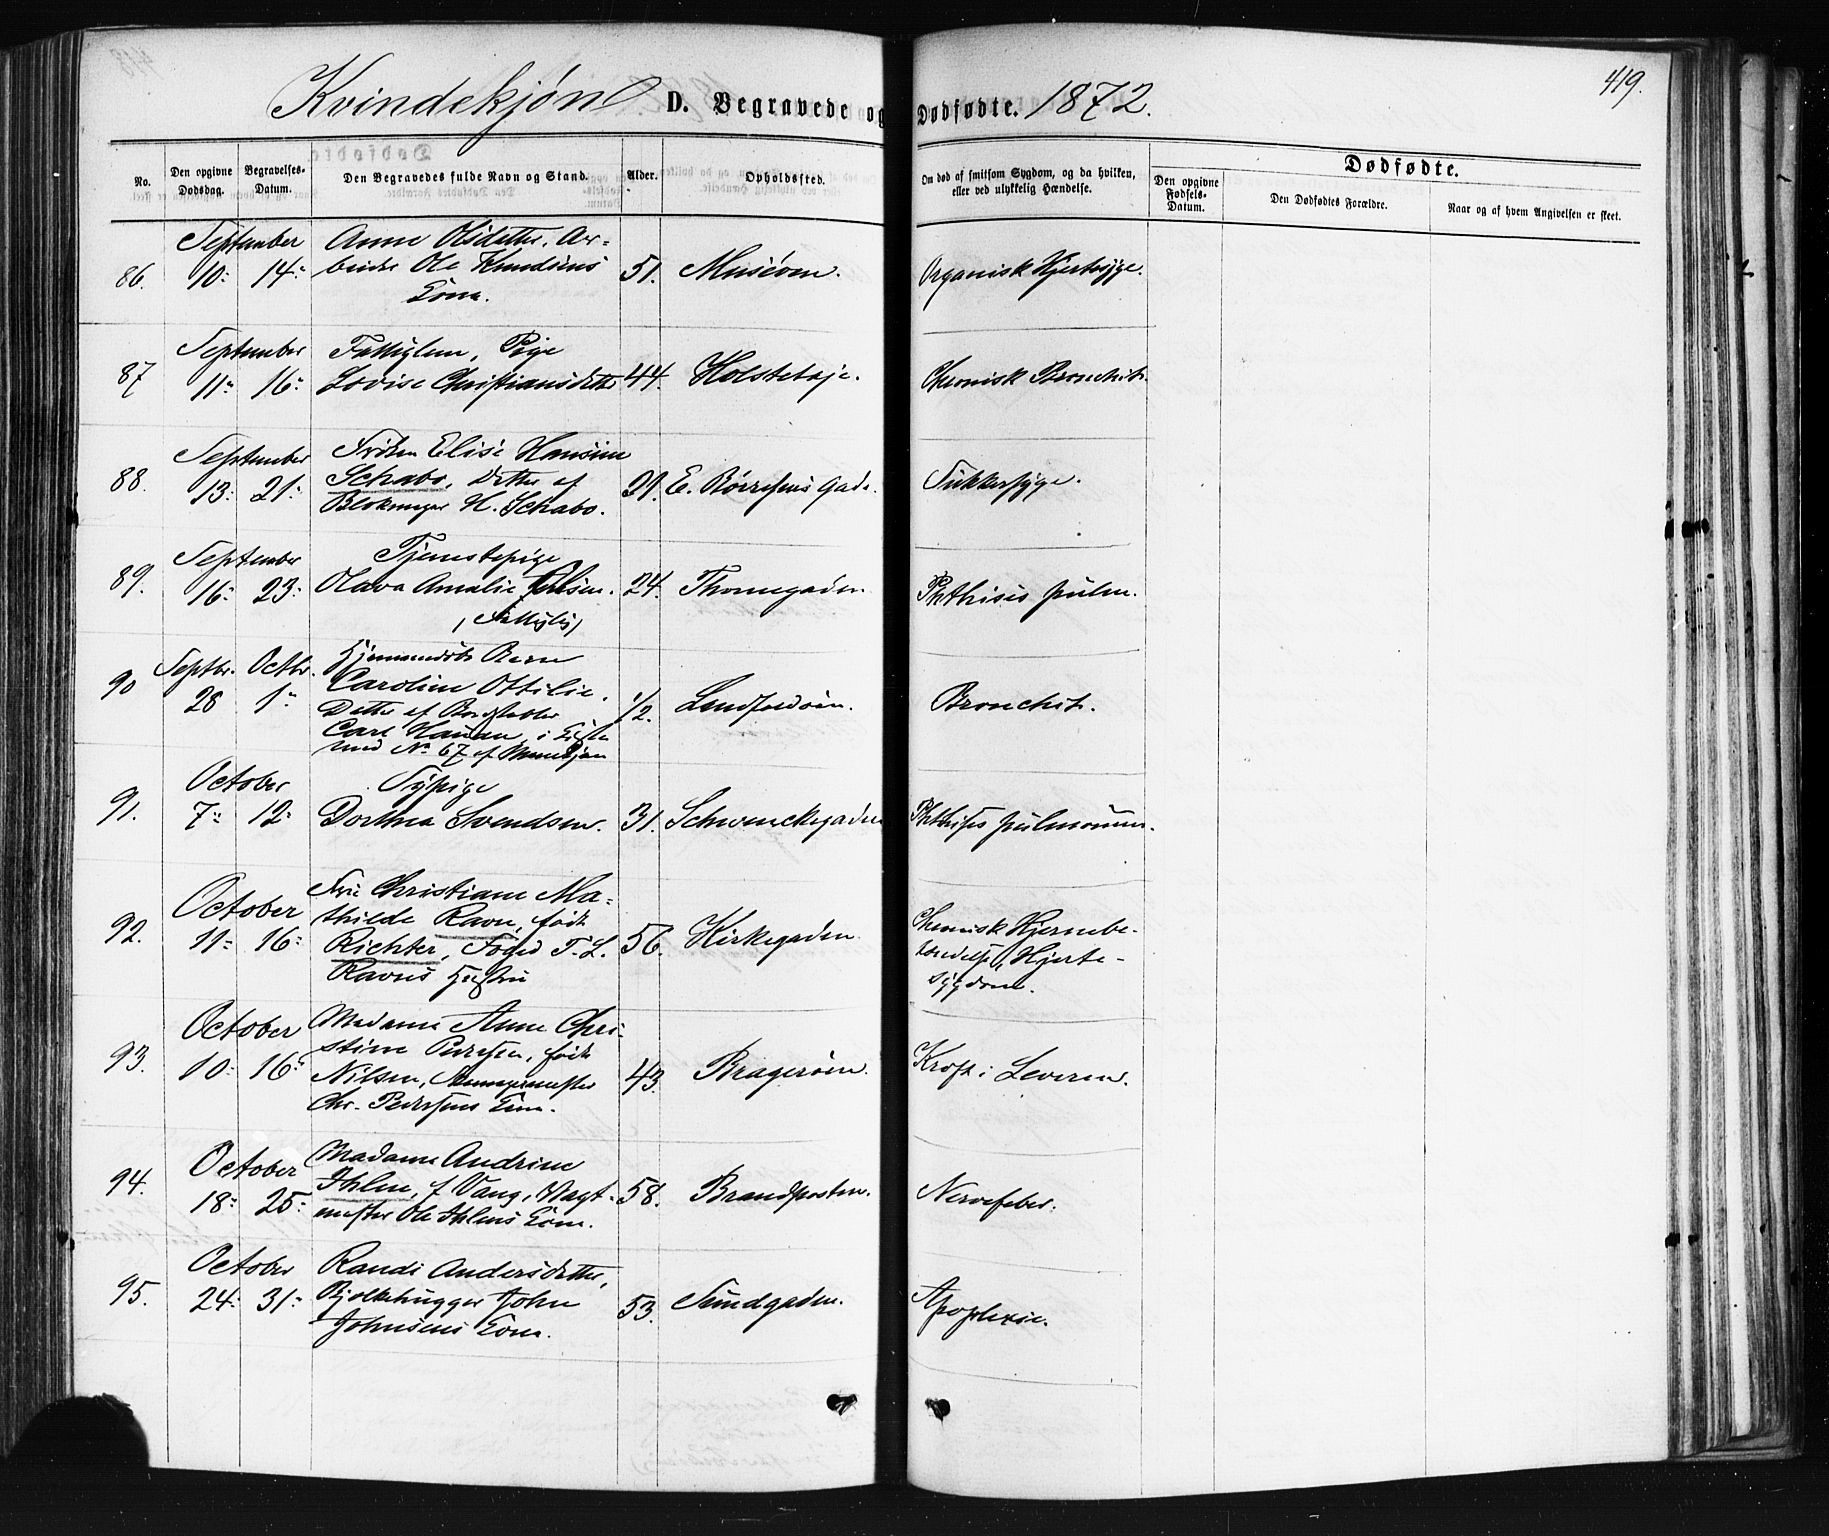 419.
Kvindekjøn D. Begravede og Dødfødte. 1872.
No.
Den opgivne Dødsdag.
Begravelses-Datum.
Den Begravedes fulde Navn og Stand.
Alder.
Opholdssted.
Om død af smitsom Sygdom, og da hvilken,
eller ved ulykkelig Hændelse.
Dødfødte.
Den opgivne Fødsels-Datum.
Den Dødfødtes Forældre.
Naar og af hvem Angivelsen er skeet.
September Anne Olsdatter, Ar-
86. 10: 14: beider Ole Knudsens 51. Organisk Hjertesyge.
Kone.
September Fattiglem, Pige
87 11: 16: Lovise Christiansdatter 44. Chronisk Bronchit.
September Frøken Elise Hansine
88. 13: 21: Schabo, Datter af 29. E. Børresens Gade. Sukkersyge.
Blokmager H. Schabo.
September Tjenestepige
89. 16: 23: Olava Amalie 24. Thornegaden Phthisis pulm.
(Fattiglig)
Septbr. Octbr. Barn
90 28 1: Caroline Ottilie, 1/2. Bronchit.
Datter af
Carl Hansen, i Kiste
med No 67 af Mandkjøn
October Sypige
91. 7: 12: Dorthea Svendsen. 31. Schwenckegaden Phthisis pulmonum.
October Frue Christiane Ma-
92. 11: 16: thilde Ravn, født 56. Kirkegaden. Chronisk Hjernebe-
Richter, Foged T. L. tændelse, Hjerte-
Ravns Hustru sygdom.
October Madame Anne Chri-
93. 10: 16: stine Pedersen, født 43. Bragerøen. Kræft i Leveren.
Nilsen,
Chr. Pedersens Kone.
October Madame Andrine
94. 18: 25: Ihlen, f Vang, Vagt- 58. Brandposten. Nervefeber.
mester Ole Ihlens Kone.
October Randi Andersdatter,
95. 24: 31: Bjelkehugger John 53. Sundgaden. Apoplexie.
Johnsens Kone.